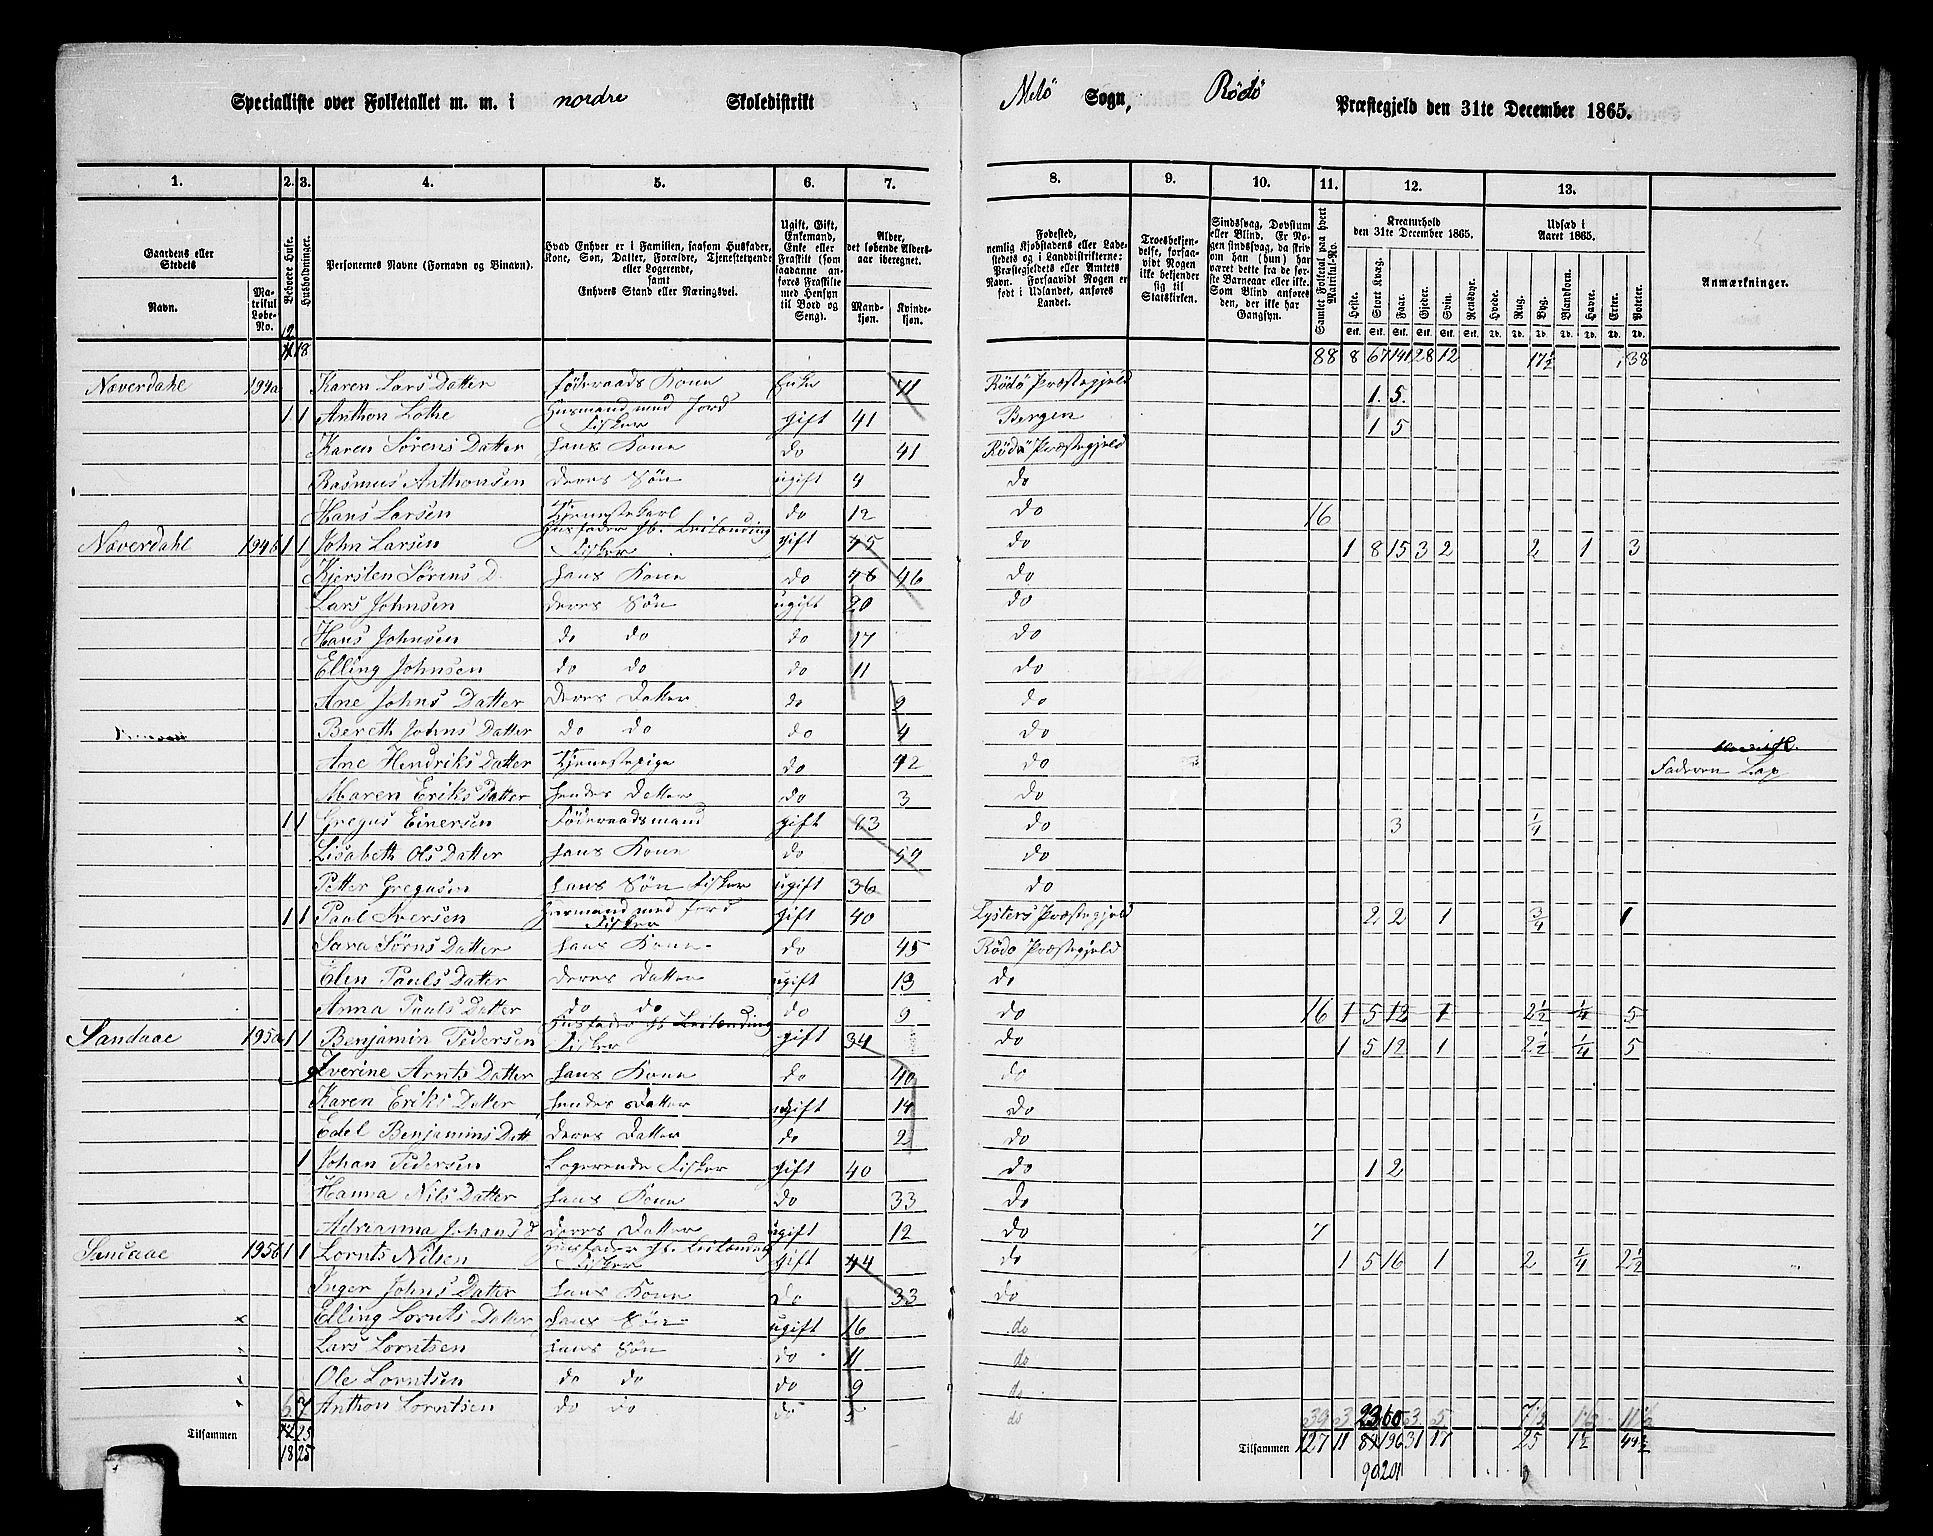 Specialliste over Folketallet m. m. i nordre Skoledistrikt Melö Sogn, Rödö Præstegjeld den 31te December 1865.
1. 2. 3. 4. 5. 6. 7. 8. 9. 10. 11. 12. 13.
Gaardens eller Stedets
Navn.
Matrikul Løbe-No.
Beboede Huse.
Husholdninger.
Personernes Navne (Fornavn og Binavn).
Hvad Enhver er i Familien, saasom Husfader, Kone, Søn, Datter, Forældre, Tjenestetyende eller Logerende, samt Enhvers Stand eller Næringsvei.
Ugift, Gift, Enkemand, Enke eller Fraskilt (som saadanne anføres Fraskilte med Hensyn til Bord og Seng).
Alder, det løbende Aldersaar iberegnet.
Mandkjøn.
Kvindekjøn.
Fødested, nemlig Kjøbstadens eller Ladestedets og i Landdistrikterne: Præstegjeldets eller Amtets Navn. Forsaavidt Nogen er født i Udlandet, anføres Landet.
Troesbekjendelse, forsaavidt Nogen ikke bekjender sig til Statskirken.
Sindssvag, Døvstum eller Blind. Er Nogen sindssvag, da skrives om han (hun) har været dette fra de første Barneaar eller ikke. Som Blind anføres den, der ikke har Gangsyn.
Samlet Folketal paa hvert Matrikul-No.
Kreaturhold den 31te December 1865.
Heste. Stort Kvæg. Faar. Gjeder. Svin. Rensdyr.
Udsæd i Aaret 1865.
Hvede. Rug. Byg. Blandkorn. Havre. Erter. Poteter.
Anmærkninger.
18 88 8 67 141 28 12 17½ 38
Naverdahl 194a Karen Lars Datter Föderaads Kone Enke 71 Rödö Præstegjeld 1. 5.
1 1 Anthon Lothe Husmand med Jord Fisker gift 41 Bergen 1 5
Karen Sörens Datter hans Kone do 41 Rödö Præstegjeld
Rasmus Anthonsen deres Sön ugift 4 do
Hans Larsen Tjenestekarl do 12 do 16
Naverdahl 194b 1 1 John Larsen Husfader Gb. Leilænding Fisker gift 45 do 1 8 15 3 2 2 1 3
Kjersten Sörens D. hans Kone do 46 46 do
Lars Johnsen deres Sön ugift 20 do
Hans Johnsen do do do 17 do
Elling Johnsen do do do 11 do
Ane Johns Datter deres Datter do 9 do
Bereth Johns Datter do do do 4 do
Ane Hendriks Datter Tjenestepige do 42 do Faderen Lap
Maren Eriks Datter hendes Datter do 3 do
1 1 Gregus Einersen Föderaadsmand gift 83 do 3 ¼
Lisabeth Ols Datter hans Kone do 59 do
Petter Gregusen hans Sön Fisker ugift 36 do
1 1 Paul Iversen Husmand med Jord Fisker gift 40 Lysters Præstegjeld 2 2 1 ¾ 1
Sara Sörns Datter hans Kone do 45 Rödö Præstegjeld
Elen Pauls Datter deres Datter ugift 13 do
Anna Pauls Datter do do do 9 do 16 1 5 12 1 2½ ¼ 5
Sandaae 195a 1 1 Benjamin Pedersen Husfader Gb. Leilænding Fisker gift 34 do 1 5 12 1 2½ ¼ 5
Iverine Arnts Datter hans Kone do 40 do
Karen Eriks Datter hendes Datter ugift 14 do
Edel Benjamins Datt deres Datter do 2 do
1 Johan Pedersen Logerende Fisker gift 40 do 1 2
Hanna Nils Datter hans Kone do 33 do
Adrianna Johans d deres Datter ugift 12 do 7
Sandaae 195b 1 1 Lornts Nilsen Husfader Gb. Leilænding Fisker gift 44 do 1 5 16 1 2 ¼ 2½
Inger Johns Datter hans Kone do 33 do
Elling Lornts Datter hans Sön ugift 16 do
Lars Lorntsen hans Sön do 11 do
Ole Lorntsen do do do 9 do
6 7 Anthon Lorntsen do do do 5 do 39 3 23 60 3 5 7½ 1½ 11½
Tilsammen 12 25 Tilsammen 127 11 89 196 31 17 25 1½ 49½
18 25 90 201